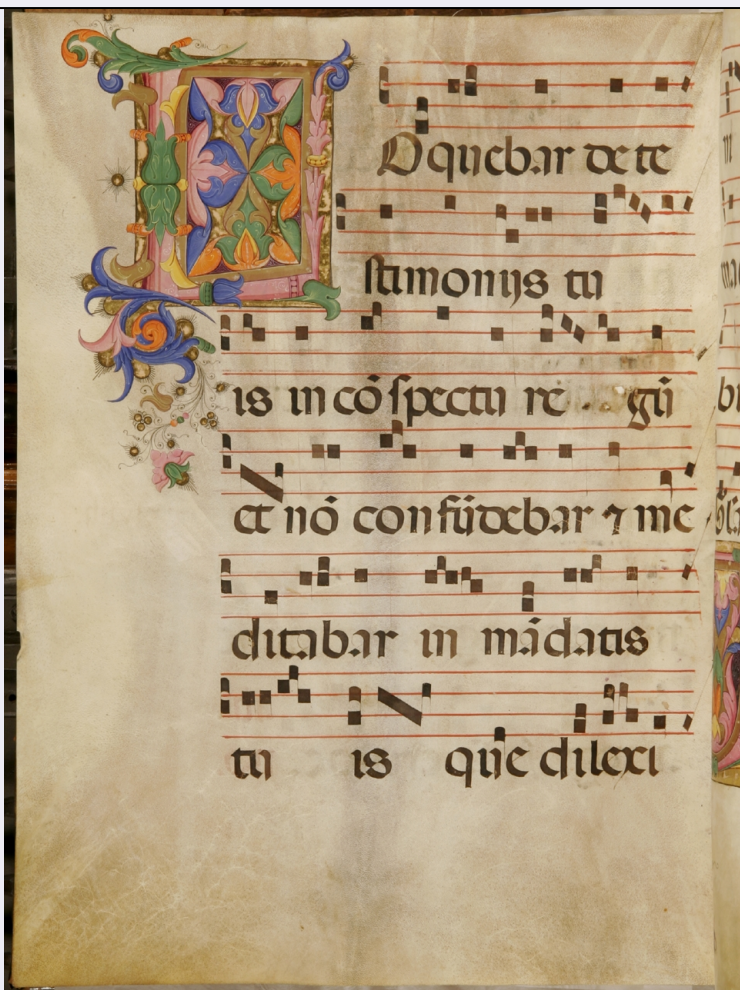 LOquebar de te
stimonijs tu
is in cõspectu re gũ
et nõ confũdebar ⁊ me
ditabar in mãdatis
tu is que dilexi